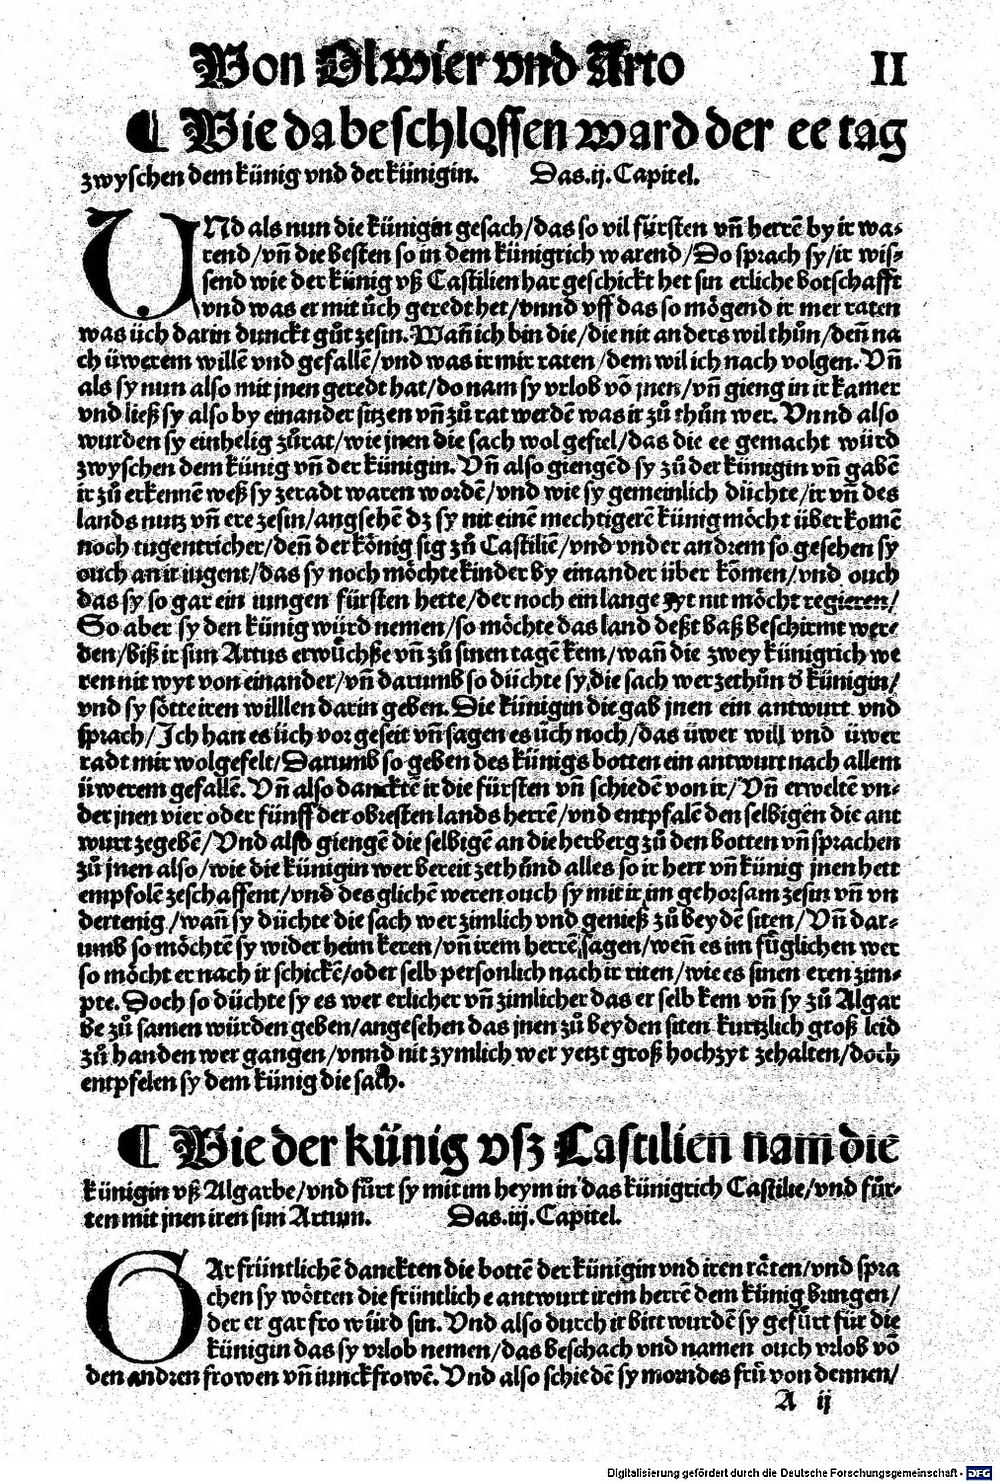 Von Olwier vnd Arto II
¶ Wie da beschlossen ward der ee tag
zwyschen dem künig vnd der künigin. Das .ij. Capitel.
UNd als nun die künigin gesach/das so vil fürsten vn̄ herrē by ir wa⸗
rend/vn̄ die besten so in dem künigrich warend/Do sprach sy/ir wis⸗
send wie der künig vß Castilien har geschickt het sin erliche botschafft
vnd was er mit üch geredt het/vnnd vff das so mögend ir mer raten
was üch darin dunckt gůt zesin. Wañ ich bin die/die nit anders wil thůn/deñ na
ch üwerem willē vnd gefallē/vnd was ir mir raten/dem wil ich nach volgen. Vn̄
als sy nun also mit jnen geredt hat/do nam sy vrlob vō jnen/vn̄ gieng in ir kamer
vnd ließ sy also by einander sitzen vn̄ zů rat werdē was ir zů thůn wer. Vnnd also
wurden sy einhelig zůrat/wie jnen die sach wol gefiel/das die ee gemacht würd
zwyschen dem künig vn̄ der künigin. Vn̄ also giengēd sy zů der künigin vn̄ gabē
ir zů erkennē weß sy zeradt waren wordē/vnd wie sy gemeinlich düchte/ir vn̄ des
lands nutz vn̄ ere zesin/angsehē dz sy nit einē mechtigerē künig möcht überkomē
noch tugentricher/deñ der kőnig sig zů Castiliē/vnd vnder andrem so gesehen sy
ouch an ir iugent/das sy noch möchte kinder by einander über kōmen/vnd ouch
das sy so gar ein iungen fürsten hette/der noch ein lange zyt nit möcht regieren/
So aber sy den künig würd nemen/so möchte das land deßt baß beschirmt wer⸗
den/biß ir sun Artus erwůchße vn̄ zů sinen tagē kem/wañ die zwey künigrich we
ren nit wyt von einander/vn̄ darumb so düchte sy die sach wer zethůn d̕ künigin/
vnd sy sötte iren willlen darin geben. Die künigin die gab jnen ein antwurt vnd
sprach/Jch han es üch vor geseit vn̄ sagen es üch noch/das üwer will vnd üwer
radt mir wolgefelt/Darumb so geben des künigs botten ein antwurt nach allem
üwerem gefallē. Vn̄ also dancktē ir die fürsten vn̄ schiedē von ir/Vn̄ erweltē vn⸗
der jnen vier oder fünff der obresten lands herrē/vnd entpfalē den selbigen die ant
wurt zegebē/Vnd also giengē die selbigē an die herberg zů den botten vn̄ sprachen
zů jnen also/wie die künigin wer bereit zethůnd alles so ir herr vn̄ künig jnen hett
empfolē zeschaffent/vnd des glichē weren ouch sy mit ir im gehorsam zesin vn̄ vn
dertenig/wañ sy düchte die sach wer zimlich vnd genieß zů beydē siten/Vn̄ dar⸗
umb so möchtē sy wider heim keren/vn̄ irem herrē sagen/weñ es im fůglichen wer
so möcht er nach ir schickē/oder selb personlich nach ir riten/wie es sinen eren zim⸗
pte. Doch so düchte sy es wer erlicher vn̄ zimlicher das er selb kem vn̄ sy zů Algar
be zů samen würden geben/angesehen das jnen zů beyden siten kurtzlich groß leid
zů handen wer gangen/vnnd nit zymlich wer yetzt groß hochzyt zehalten/doch
entpfelen sy dem künig die sach.
¶ Wie der künig vsz Castilien nam die
künigin vß Algarbe/vnd fůrt sy mit im heym in das künigrich Castilie/vnd fůr⸗
ten mit jnen iren sun Artum. Das .iij. Capitel.
GAr früntlichē danckten die bottē der künigin vnd iren räten/vnd spra
chen sy wötten die früntliche antwurt irem herrē dem künig bringen/
der er gar fro würd sin. Vnd also durch ir bitt wurdē sy gefůrt für die
künigin das sy vrlob nemen/das beschach vnd namen ouch vrlob vō
den andren frowen vn̄ iunckfrowē. Vnd also schiedē sy morndes frů von dennen/
A ij
Digitalisierung gefördert durch die Deutsche Forschungsgemeinschaft - DFG